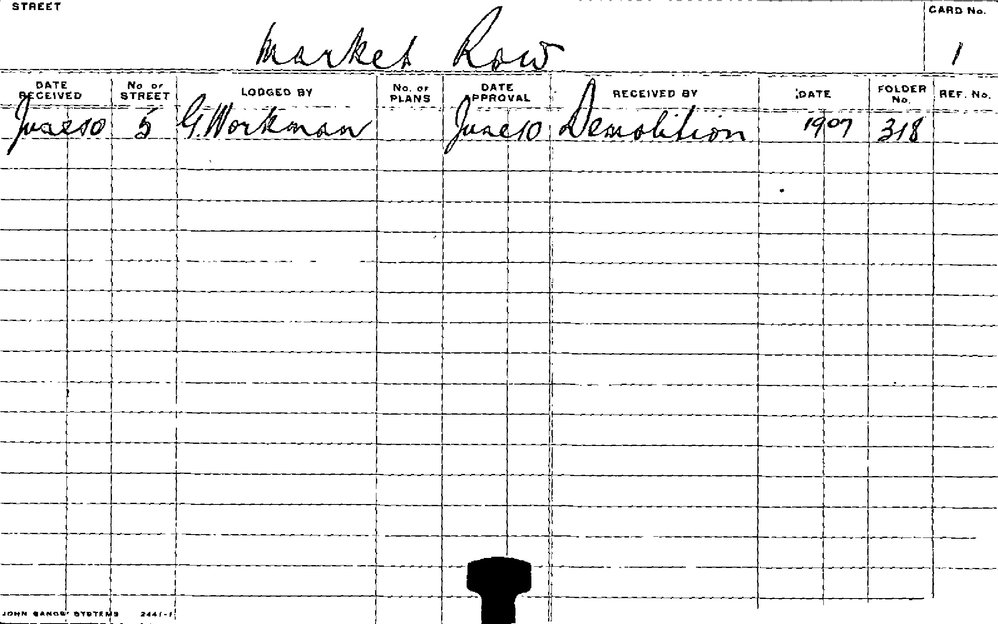 STREET
CARD No.
Market Row
1
DATE RECEIVED No OF STREET LODGED BY No. OF PLANS DATE APPROVAL RECEIVED BY DATE FOLDER No. REF. No.
June 10 5 G. Workman June 10 Demolition 1907 318
JOHN SANDS' SYSTEMS 2441-1